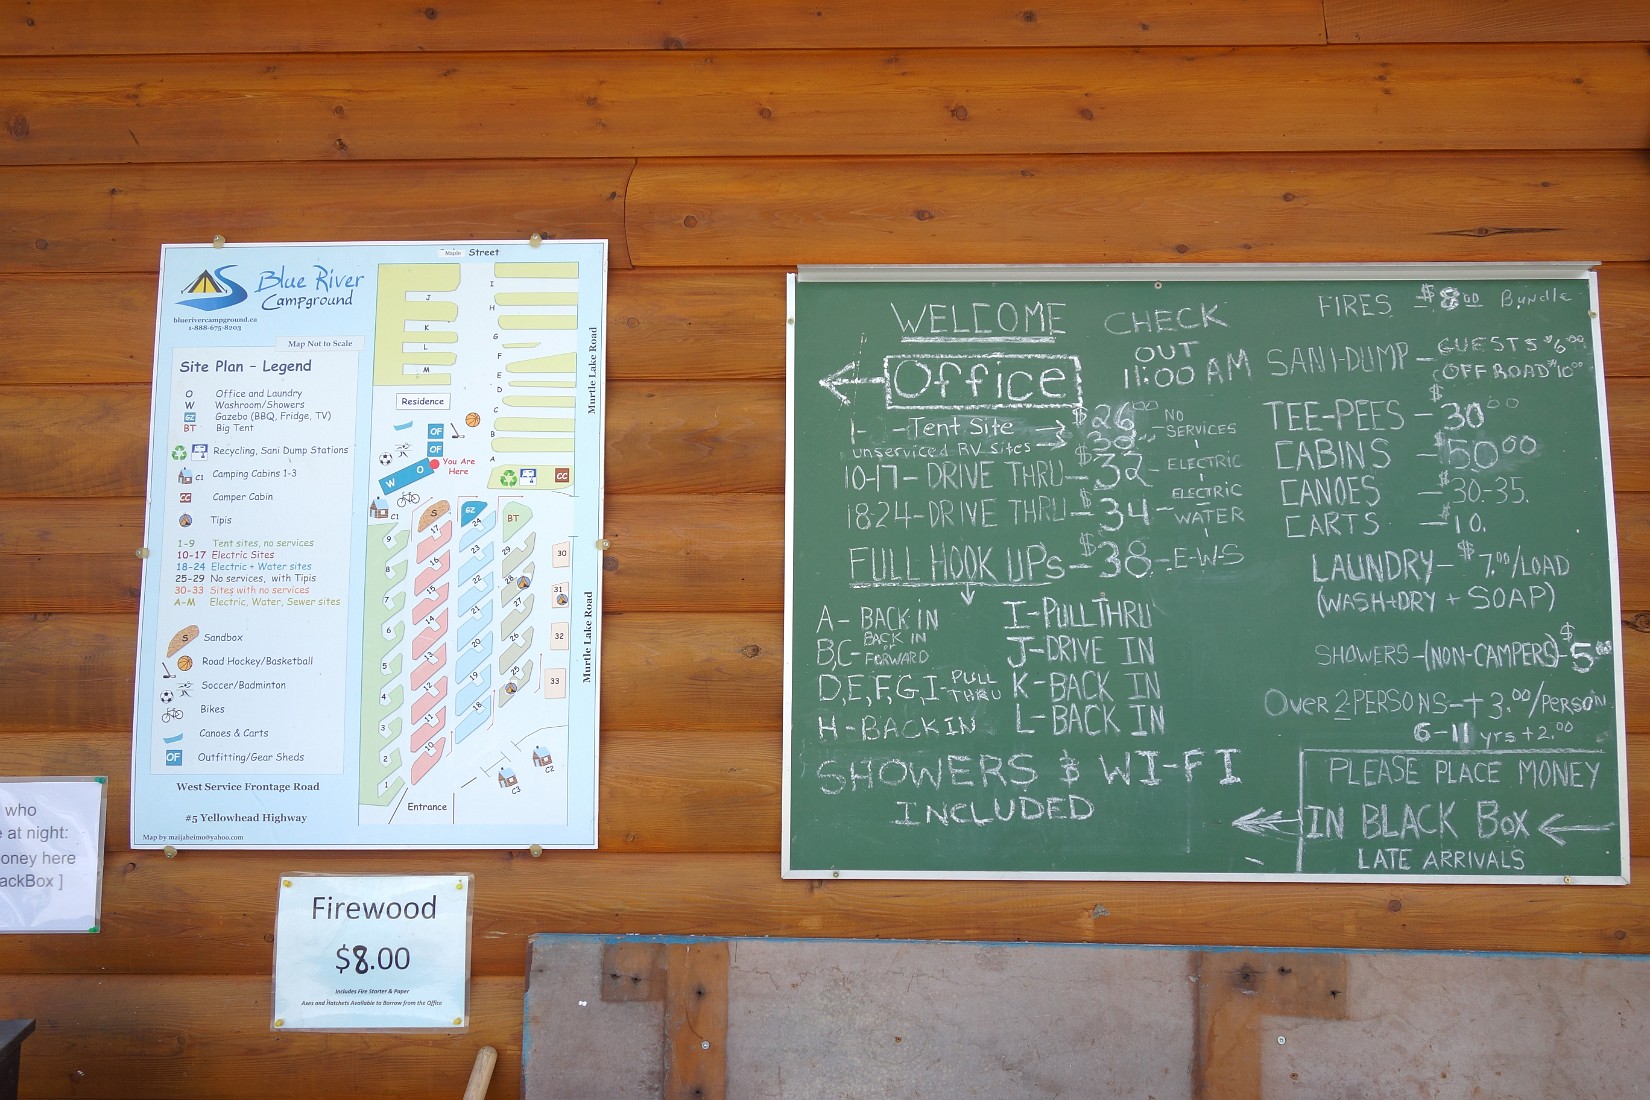 Maple Street
Blue River
Campground
bluerivercampground.ca
1-888-675-8203
Map Not to Scale
Site Plan - Legend
O Office and Laundry
W Washroom/Showers
GZ Gazebo (BBQ, Fridge, TV)
BT Big Tent
Recycling, Sani Dump Stations
C1 Camping Cabins 1-3
CC Camper Cabin
Tipis
1-9 Tent sites, no services
10-17 Electric Sites
18-24 Electric + Water sites
25-29 No services, with Tipis
30-33 Sites with no services
A-M Electric, Water, Sewer sites
S Sandbox
Road Hockey/Basketball
Soccer/Badminton
Bikes
Canoes & Carts
OF Outfitting/Gear Sheds
West Service Frontage Road
#5 Yellowhead Highway
Map by maijaheimo@yahoo.com
J
K
L
M
I
H
G
F
E
D
C
B
A
Residence
OF
OF
O
W
You Are
Here
CC
C1
S
GZ
BT
9
8
7
6
5
4
3
2
1
17
16
15
14
13
12
11
10
24
23
22
21
20
19
18
29
28
27
26
25
30
31
32
33
C2
C3
Entrance
Murtle Lake Road
Murtle Lake Road
who
e at night:
oney here
ackBox ]
Firewood
$8.00
Includes Fire Starter & Paper
Axes and Hatchets Available to Borrow from the Office
WELCOME
Office
CHECK
OUT
11:00 AM
1- -Tent Site $26.00 NO SERVICES
unserviced RV sites
10-17- DRIVE THRU- $32 - ELECTRIC
18-24-DRIVE THRU- $34 - ELECTRIC WATER
FULL HOOK UPs - $38 - E-W-S
A- BACK IN
B,C- BACK IN or FORWARD
D,E,F,G,I- PULL THRU
H-BACK IN
I-PULL THRU
J-DRIVE IN
K-BACK IN
L-BACK IN
SHOWERS & WI-FI
INCLUDED
FIRES - $8.00 Bundle
SANI-DUMP - GUESTS $6.00
OFF ROAD $10.00
TEE-PEES - $30.00
CABINS - $50.00
CANOES - $30-35.
CARTS - $10.
LAUNDRY- $7.00/LOAD
(WASH+DRY + SOAP)
SHOWERS-(NON-CAMPERS)- $5.00
Over 2 PERSONS-+ 3.00/Person
6-11 yrs +2.00
PLEASE PLACE MONEY
IN BLACK Box
LATE ARRIVALS